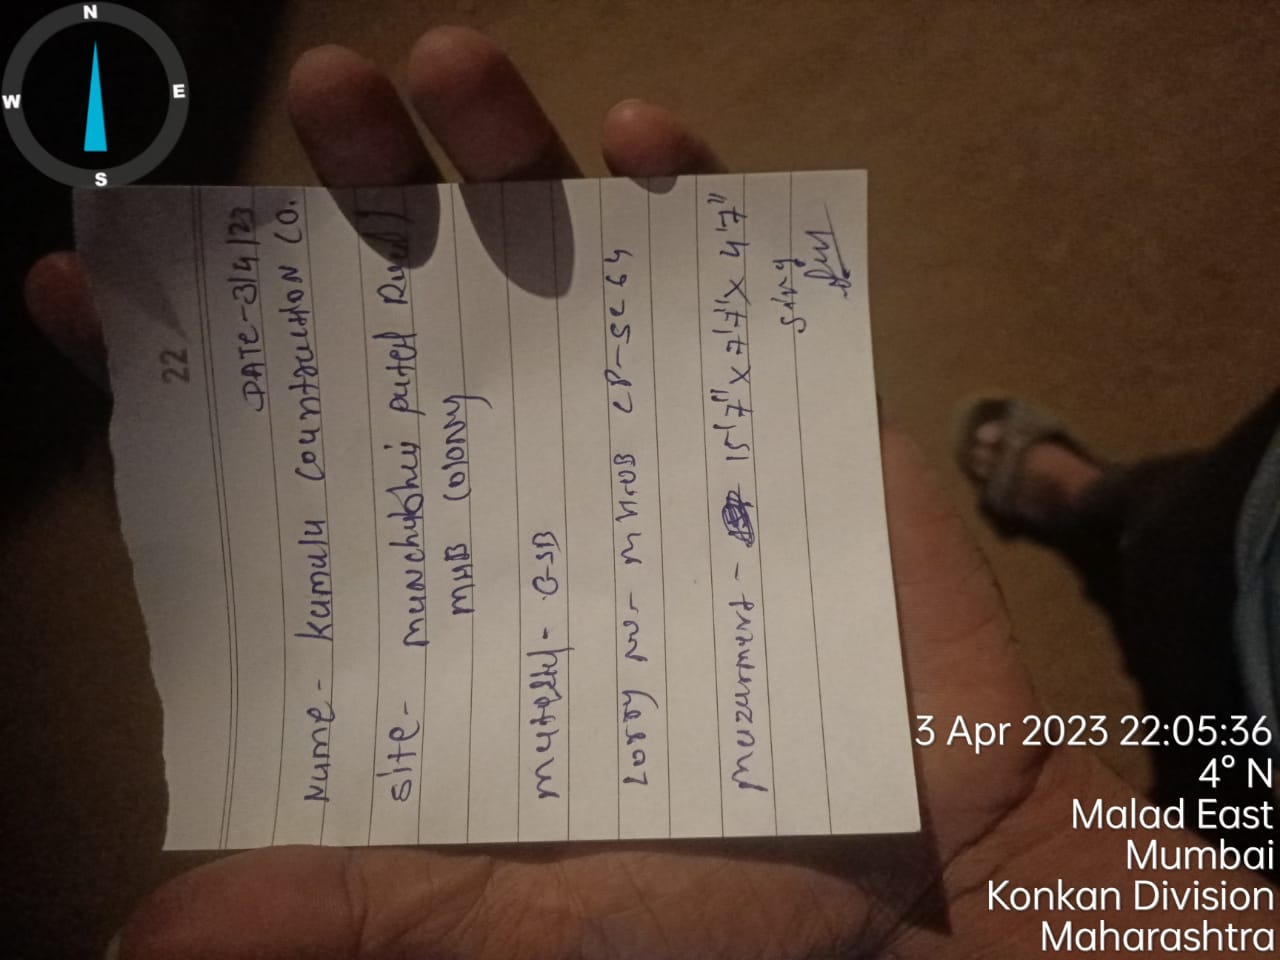 N
W
E
S
22
DATE-3/4/23
Name - kamala Countraction CO.
Site - manchubhij patel Road
MHB COlONY
Mateelyl - GSB
Lorry no - MH.0B CP-5C64
Mezurment - 15'7" x 7'7" x 4'7"
Sing
3 Apr 2023 22:05:36
4° N
Malad East
Mumbai
Konkan Division
Maharashtra